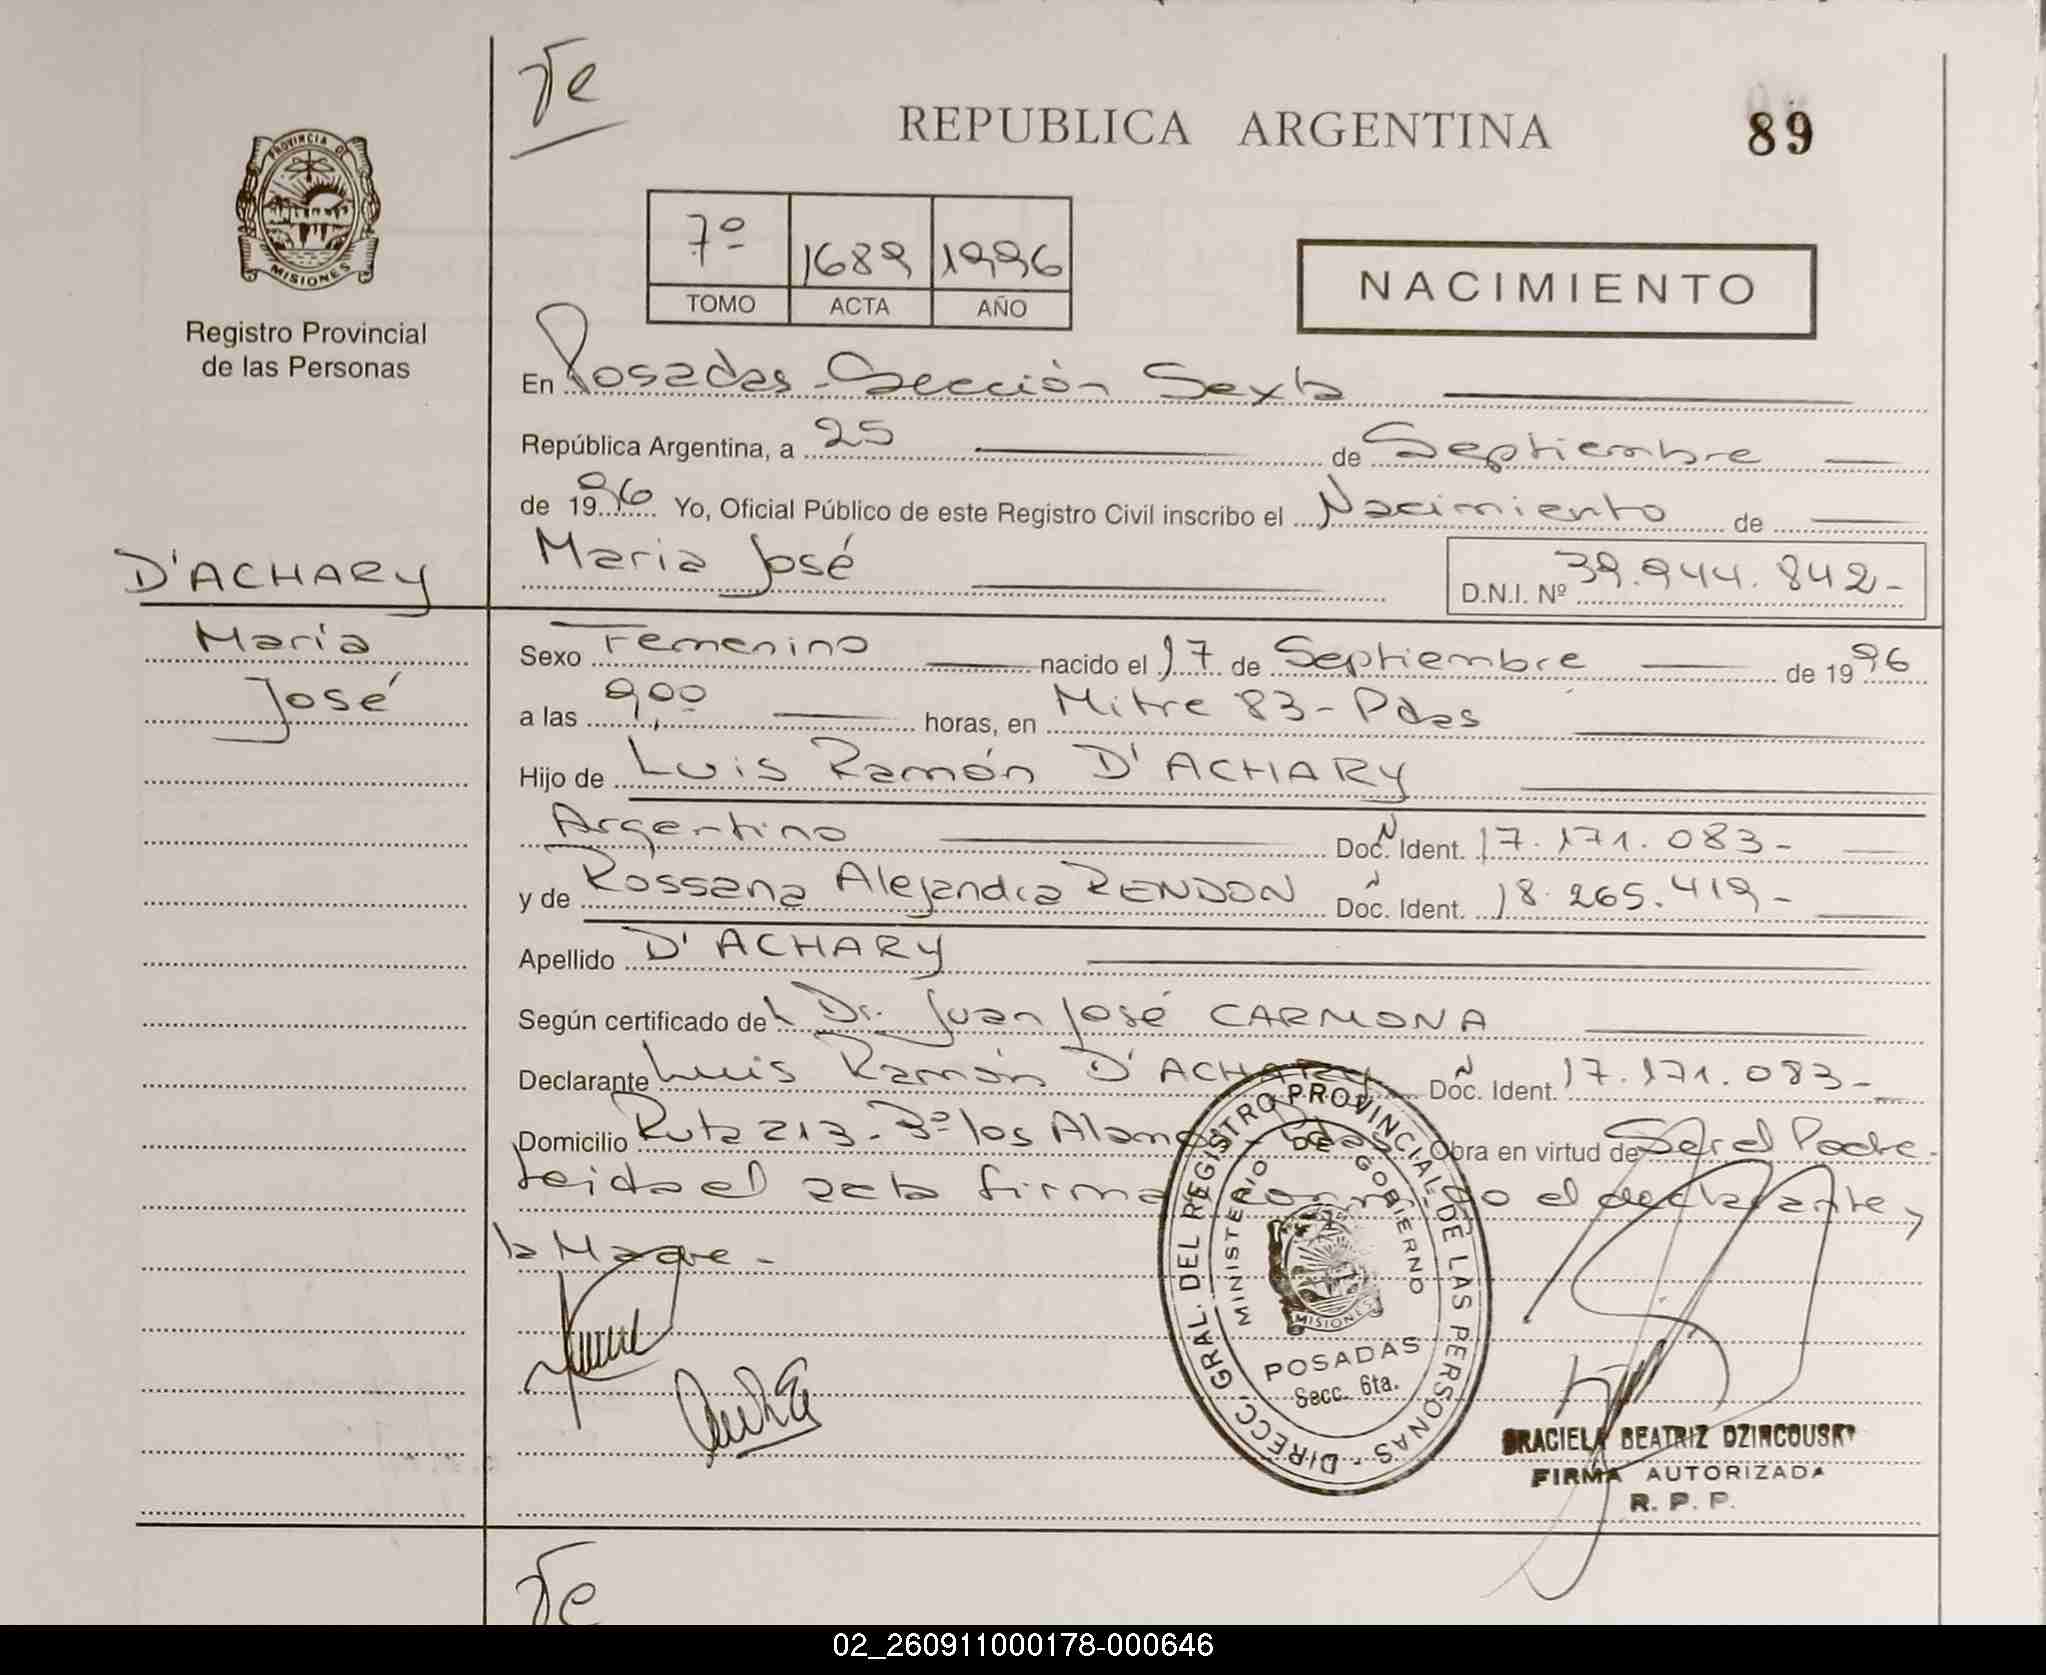 Te
REPUBLICA ARGENTINA
89
PROVINCIA DE
MISIONES
Registro Provincial
de las Personas
7º 1689 1996
TOMO ACTA AÑO
NACIMIENTO
En Posadas - Sección Sexta
República Argentina, a 25 de Septiembre
de 1996 Yo, Oficial Público de este Registro Civil inscribo el Nacimiento de
D'ACHARY
Maria José
D.N.I. Nº 39.944.842-
María
José
Sexo Femenino nacido el 17 de Septiembre de 1996
a las 9,00 horas, en Mitre 83 - Pdas
Hijo de Luis Ramón D'ACHARY
Argentino Doc. Ident. 17.171.083-
y de Rossana Alejandra RENDON Doc. Ident. 18.265.419-
Apellido D'ACHARY
Según certificado del Dr. Juan José CARMONA
Declarante Luis Ramón D'ACHARY Doc. Ident. 17.171.083-
Domicilio Ruta 213 - Bº los Alamos - Pdas Obra en virtud de Ser el Padre.
Leida el acta firma conmigo el declarante y
la Madre -
DIRECC. GRAL. DEL REGISTRO PROVINCIAL DE LAS PERSONAS
MINISTERIO DE GOBIERNO
MISIONES
POSADAS
Secc. 6ta.
GRACIELA BEATRIZ DZIRCOUSKY
FIRMA AUTORIZADA
R. P. P.
Te
02_260911000178-000646